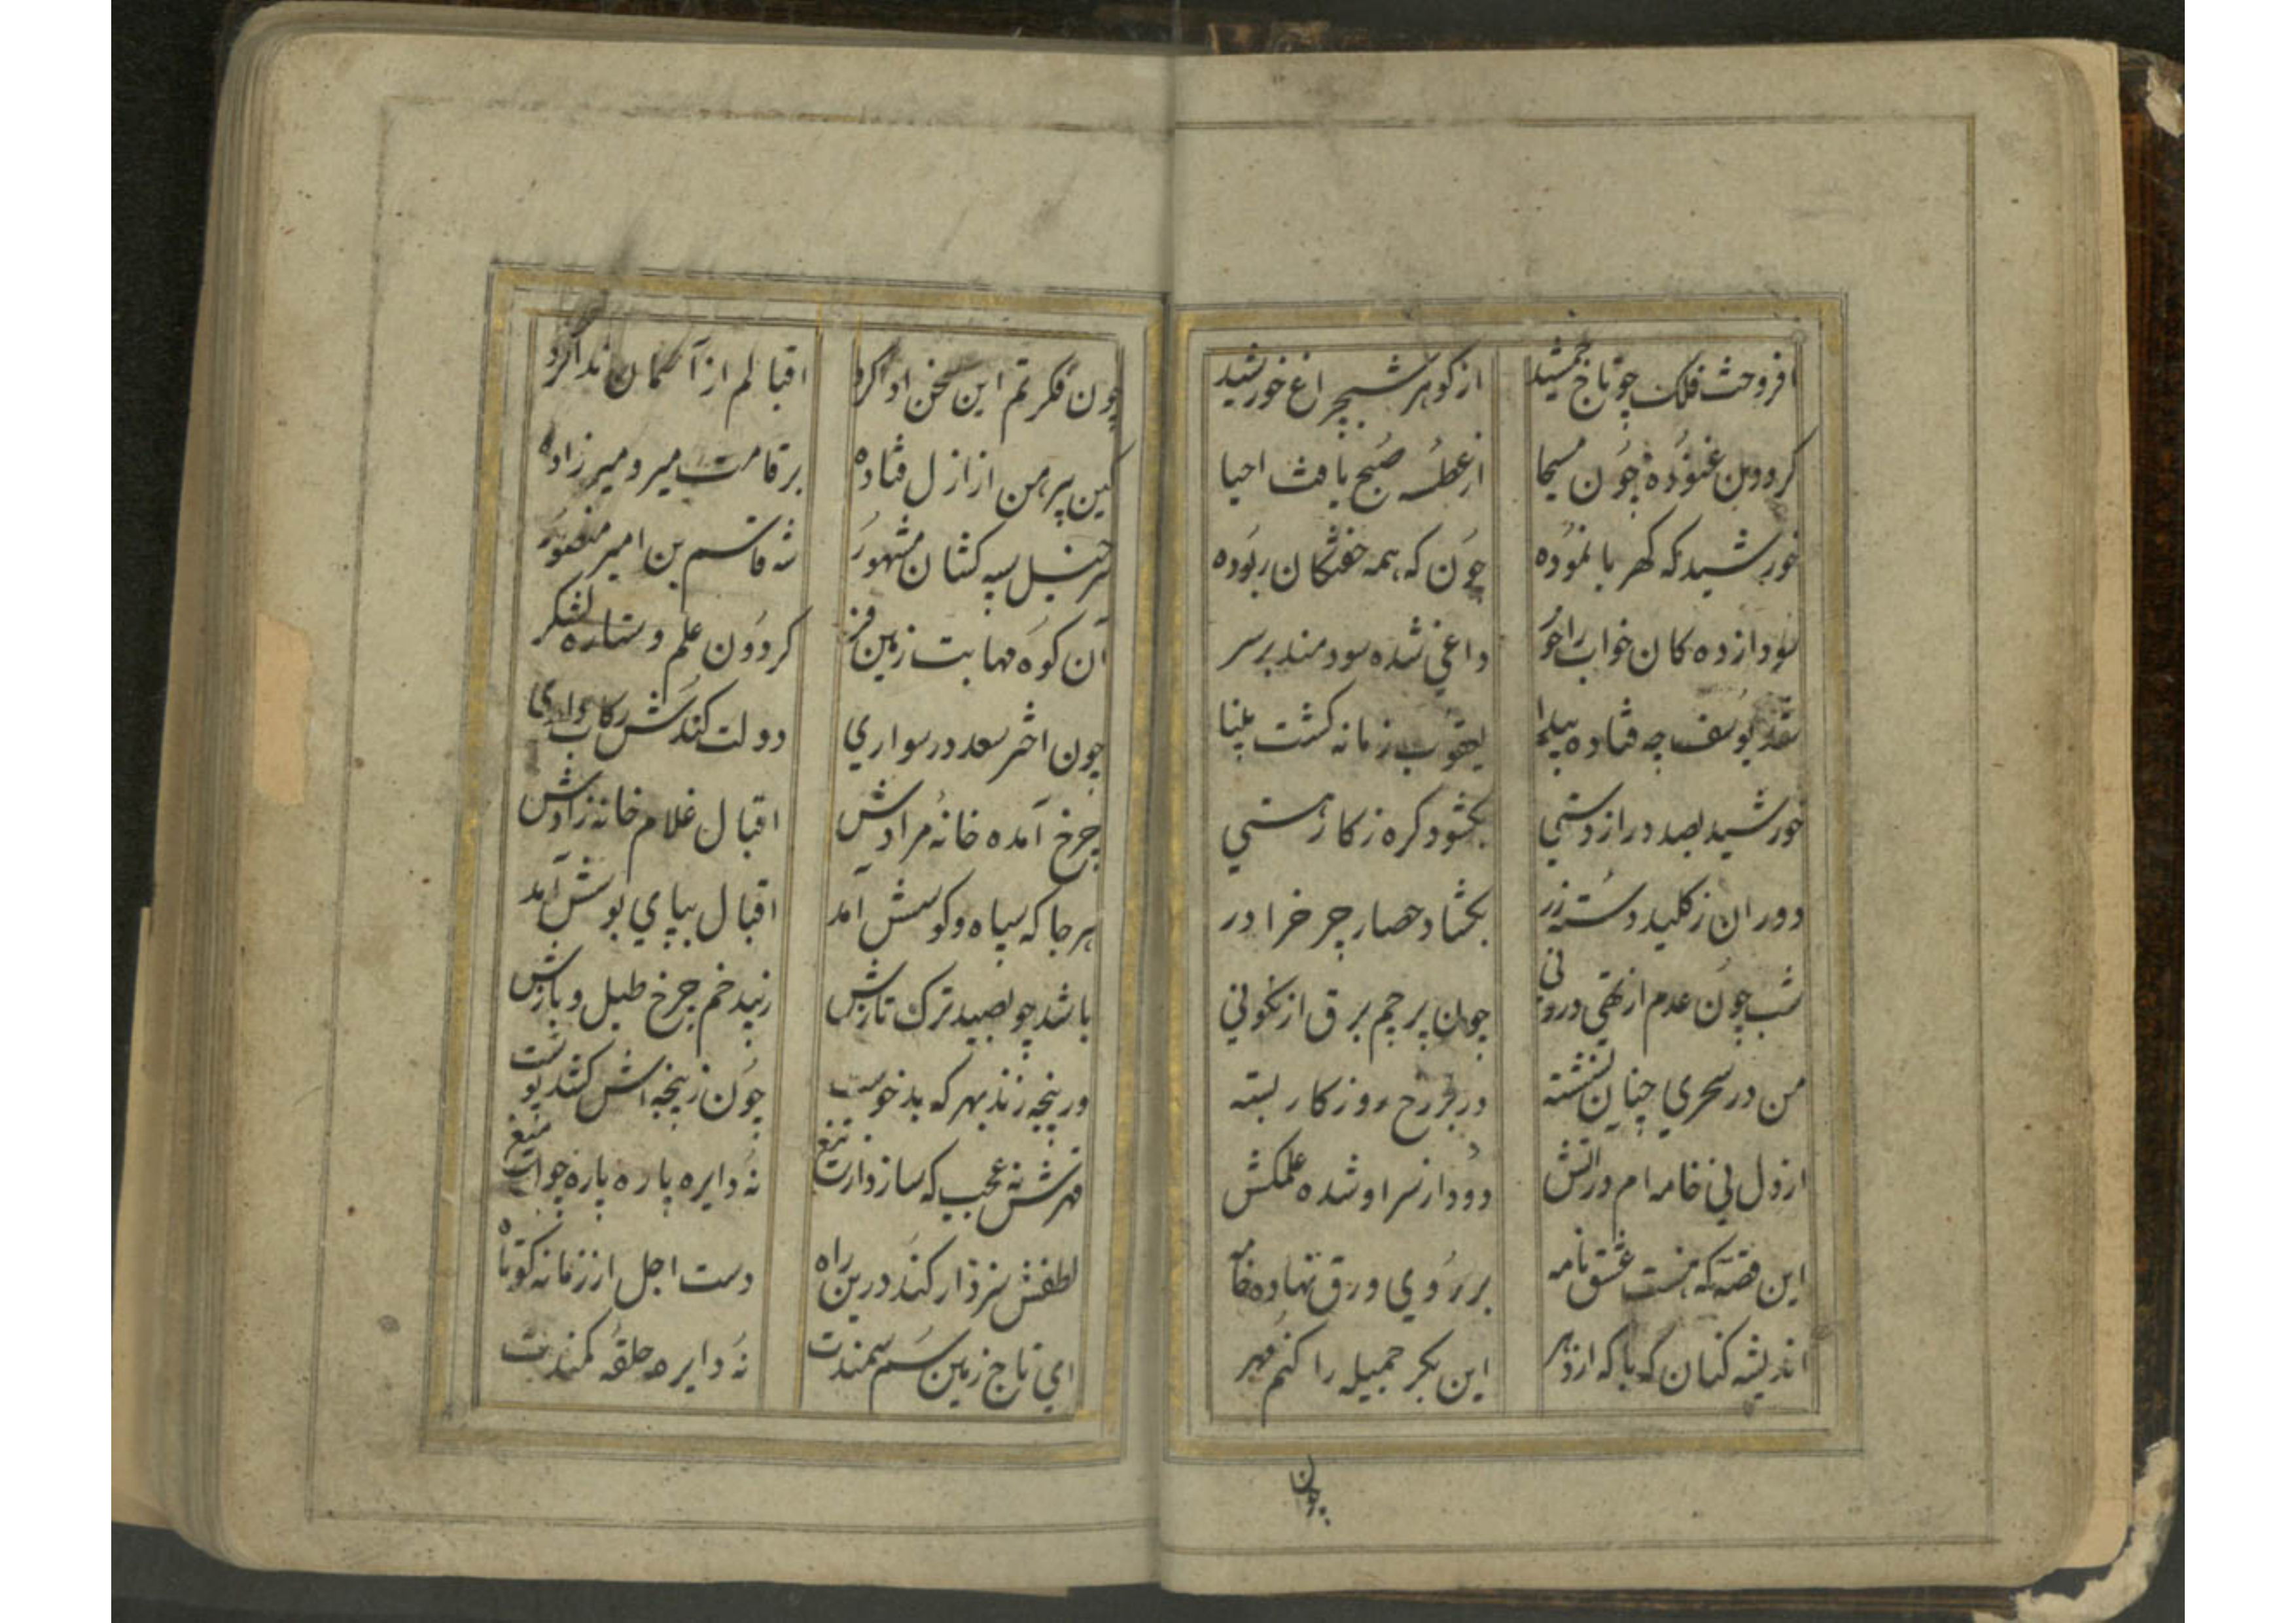 افروخت فلک چو تاج جمشید از گوهر شبچراغ خورشید
گردون غنوده چون مسیحا از عطسه صبح یافت احیا
خورشید که کهربا نموده چون که همه خفتگان ربوده
سودازده کان خواب را خور داغی شده سودمند بر سر
شد یوسف چه فتاده پیدا یعقوب زمانه گشت بینا
خورشید بصد دراز دستی بگشود گره ز کار هستی
دوران ز کلید دسته زر بگشاد حصار چرخ را در
شب چون عدم از تهی درونی چون پرچم برق از نگونی
من در سحری چنان نشسته در بر رخ روزگار بسته
از دل نی خامه ام در آتش دود از سر او شده علمکش
این قصه که هست عشق نامه بر روی ورق نهاده خامه
اندیشه کنان که با که از دهر این بکر جمیله را کنم مهر
چون
چون فکرتم این سخن ادا کرد اقبالم از آسمان ندا کرد
کین پیرهن از ازل فتاده بر قامت میر و میرزاده
سرخیل سپه کشان مشهور شه قاسم بن امیر منصور
آن کوه مهابت زمین فر گردون علم و ستاره لشکر
چون اختر سعد در سواری دولت کندش رکابداری
چرخ آمده خانه مرادش اقبال غلام خانه زادش
هرجا که سپاه و کوسش آمد اقبال بپای بوسش آمد
باشد چو بصید ترک تازش زیبد خم چرخ طبل بازش
ور پنجه زند بهر که بدخوست چون ز پنجه اش کشد پوست
قهرش نه عجب که سازد از تیغ نه دایره پاره پاره چون میغ
لطفش سزد ار کند درین راه دست اجل از زمانه کوتاه
ای تاج زمین سم سمندت نه دایره حلقه کمندت